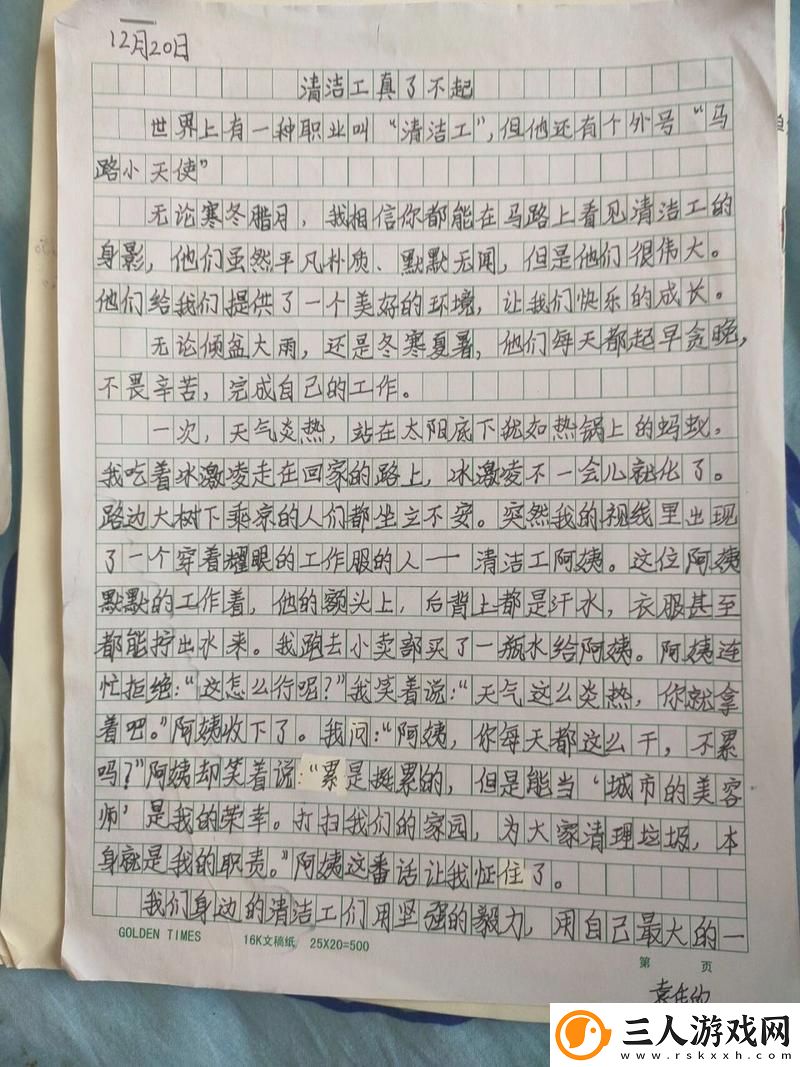 12月20日
清洁工真了不起
世界上有一种职业叫“清洁工”,但他还有个外号“马
路小天使”
无论寒冬腊月，我相信你都能在马路上看见清洁工的
身影，他们虽然平凡朴质、默默无闻，但是他们很伟大。
他们给我们提供了一个美好的环境，让我们快乐的成长。
无论倾盆大雨，还是冬寒夏暑，他们每天都起早贪晚，
不畏辛苦，完成自己的工作。
一次，天气炎热，站在太阳底下犹如热锅上的蚂蚁，
我吃着冰激凌走在回家的路上，冰激凌不一会儿就化了。
路边大树下乘凉的人们都坐立不安。突然我的视线里出现
了一个穿着耀眼的工作服的人——清洁工阿姨。这位阿姨
默默的工作着，他的额头上，后背上都是汗水，衣服甚至
都能拧出水来。我跑去小卖部买了一瓶水给阿姨。阿姨连
忙拒绝：“这怎么行呢？”我笑着说：“天气这么炎热，你就拿
着吧。”阿姨收下了。我问：“阿姨，你每天都这么干，不累
吗？”阿姨却笑着说：“累是挺累的，但是能当‘城市的美容
师’是我的荣幸。打扫我们的家园，为大家清理垃圾，本
身就是我的职责。”阿姨这番话让我怔住了。
我们身边的清洁工们用坚强的毅力，用自己最大的一
GOLDEN TIMES 16K文稿纸 25X20=500
第 页
三人游戏网
www.rskxxh.com